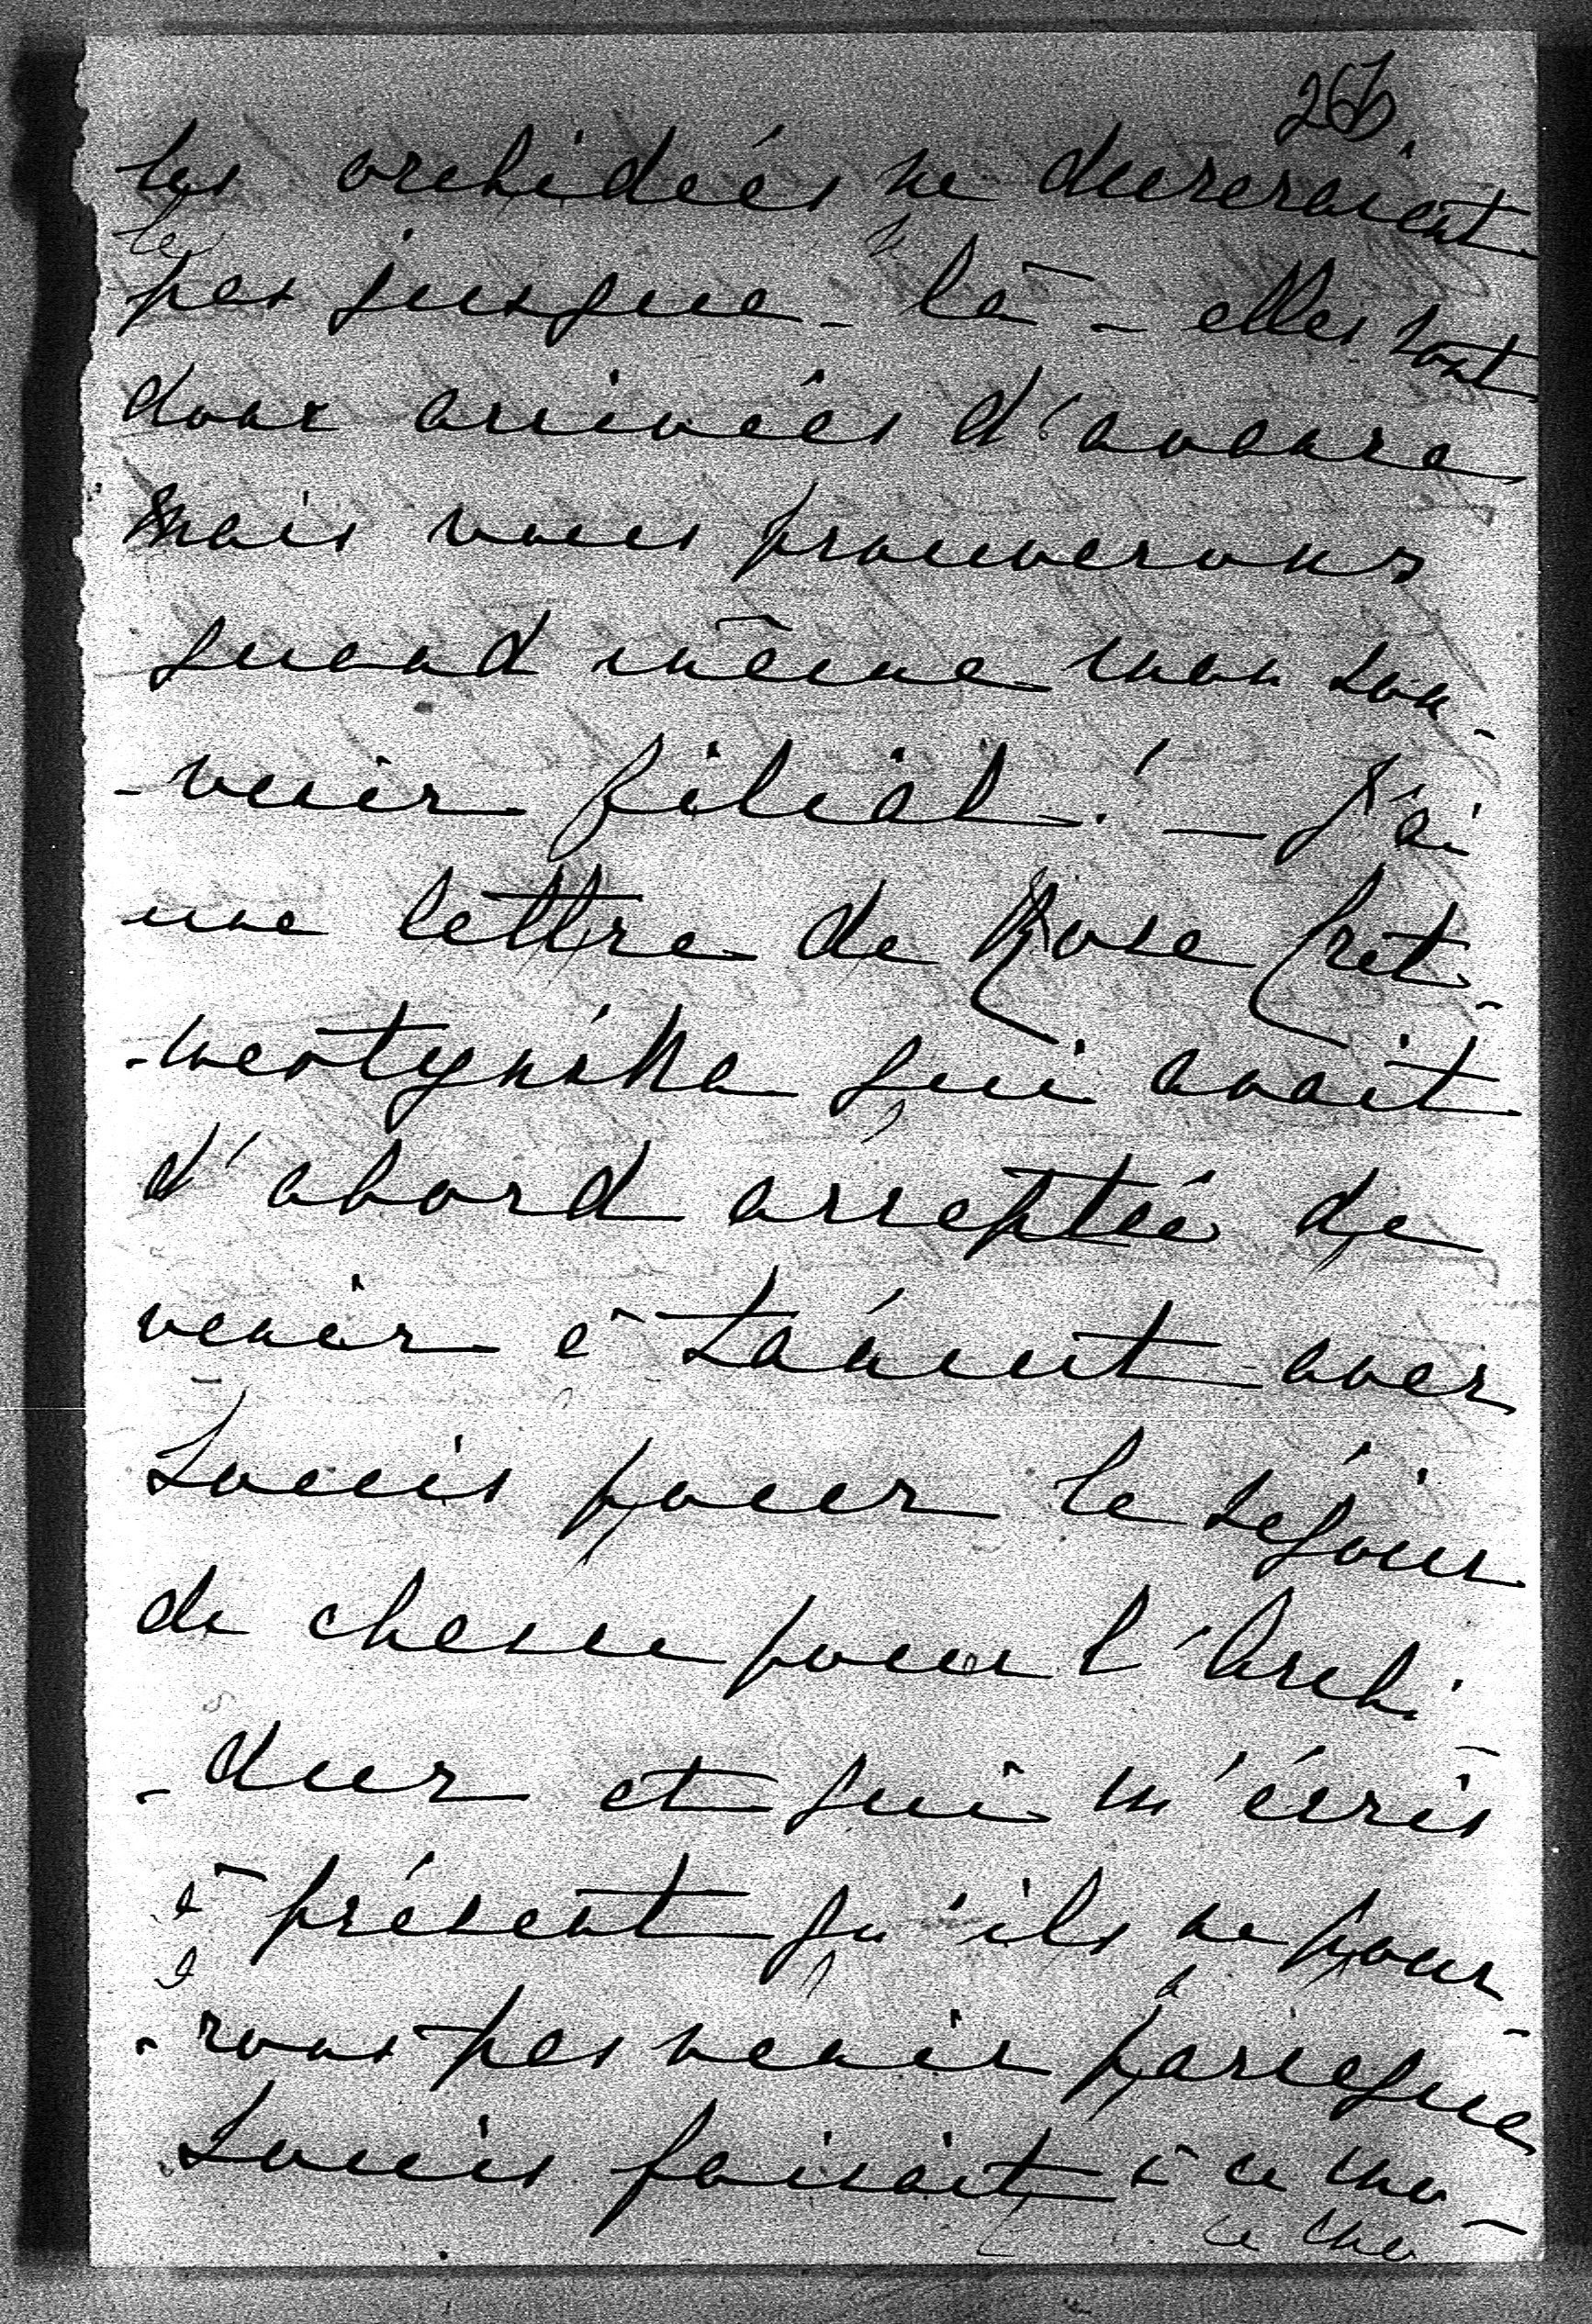 267.
les orchidées ne dureraient
pas jusque-là - elles sont
donc arrivées d'avance
mais vous prouverons
quand même mon sou-
-venir filial! - J'ai
une lettre de Rose Czet-
-wertynska qui avait
d'abord acceptée de
venir à Łańcut avec
Louis pour le séjour
de chasse pour l'Archi-
-duc et qui m'écris
à présent qu'ils ne pour-
-rons pas venir parceque
Louis faisait à ce mo-